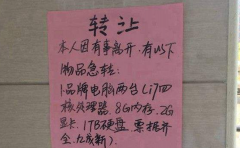 转让
本人因有事离开,有以下
物品急转:
1.品牌电脑两台(i7四
核处理器、8G内存、2G
显卡、1TB硬盘 票据齐
全、九成新).